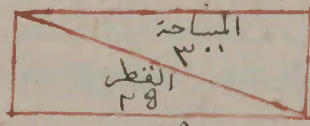 المساحة
٣٠٠
القطر
٢٥